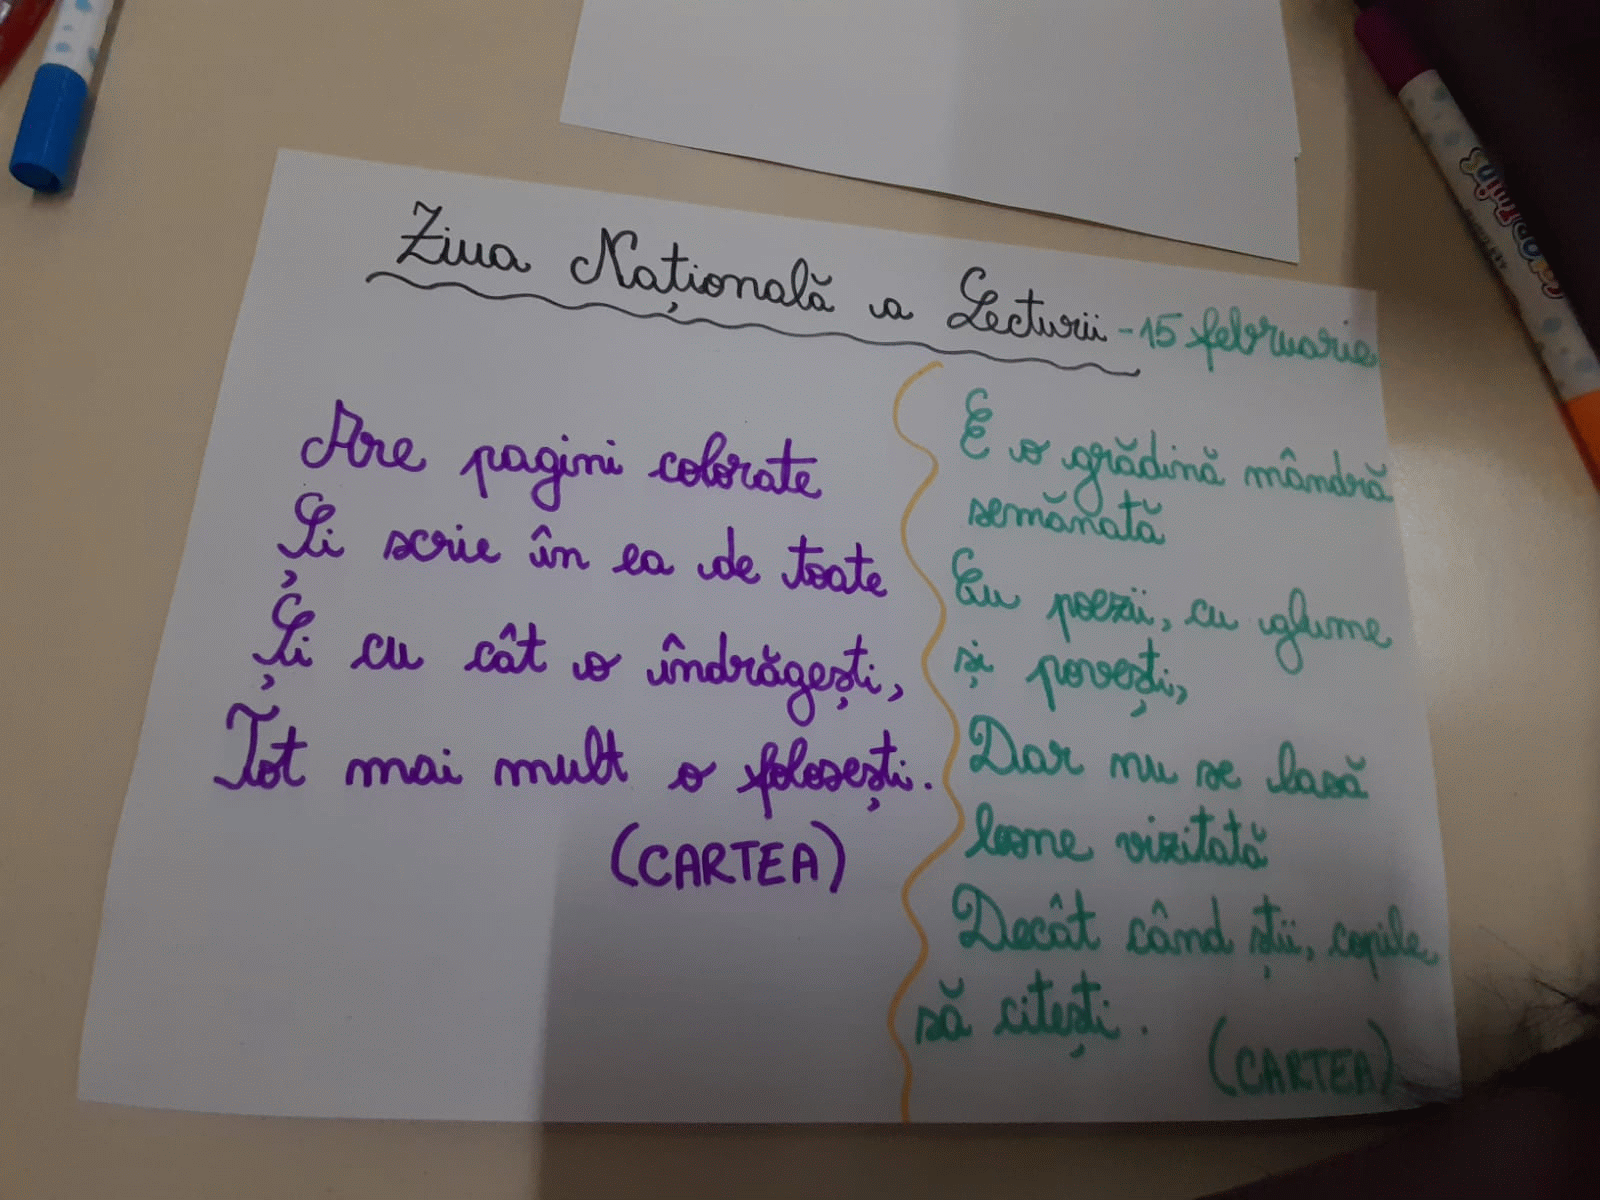 Ziua Națională a Lecturii - 15 februarie
Are pagini colorate
Și scrie în ea de toate
Și cu cât o îndrăgești,
Tot mai mult o folosești.
(CARTEA)
E o grădină mândră
semănată
Cu poezii, cu glume
și povești,
Dar nu se lasă
lesne vizitată
Decât când știi, copile
să citești.
(CARTEA)